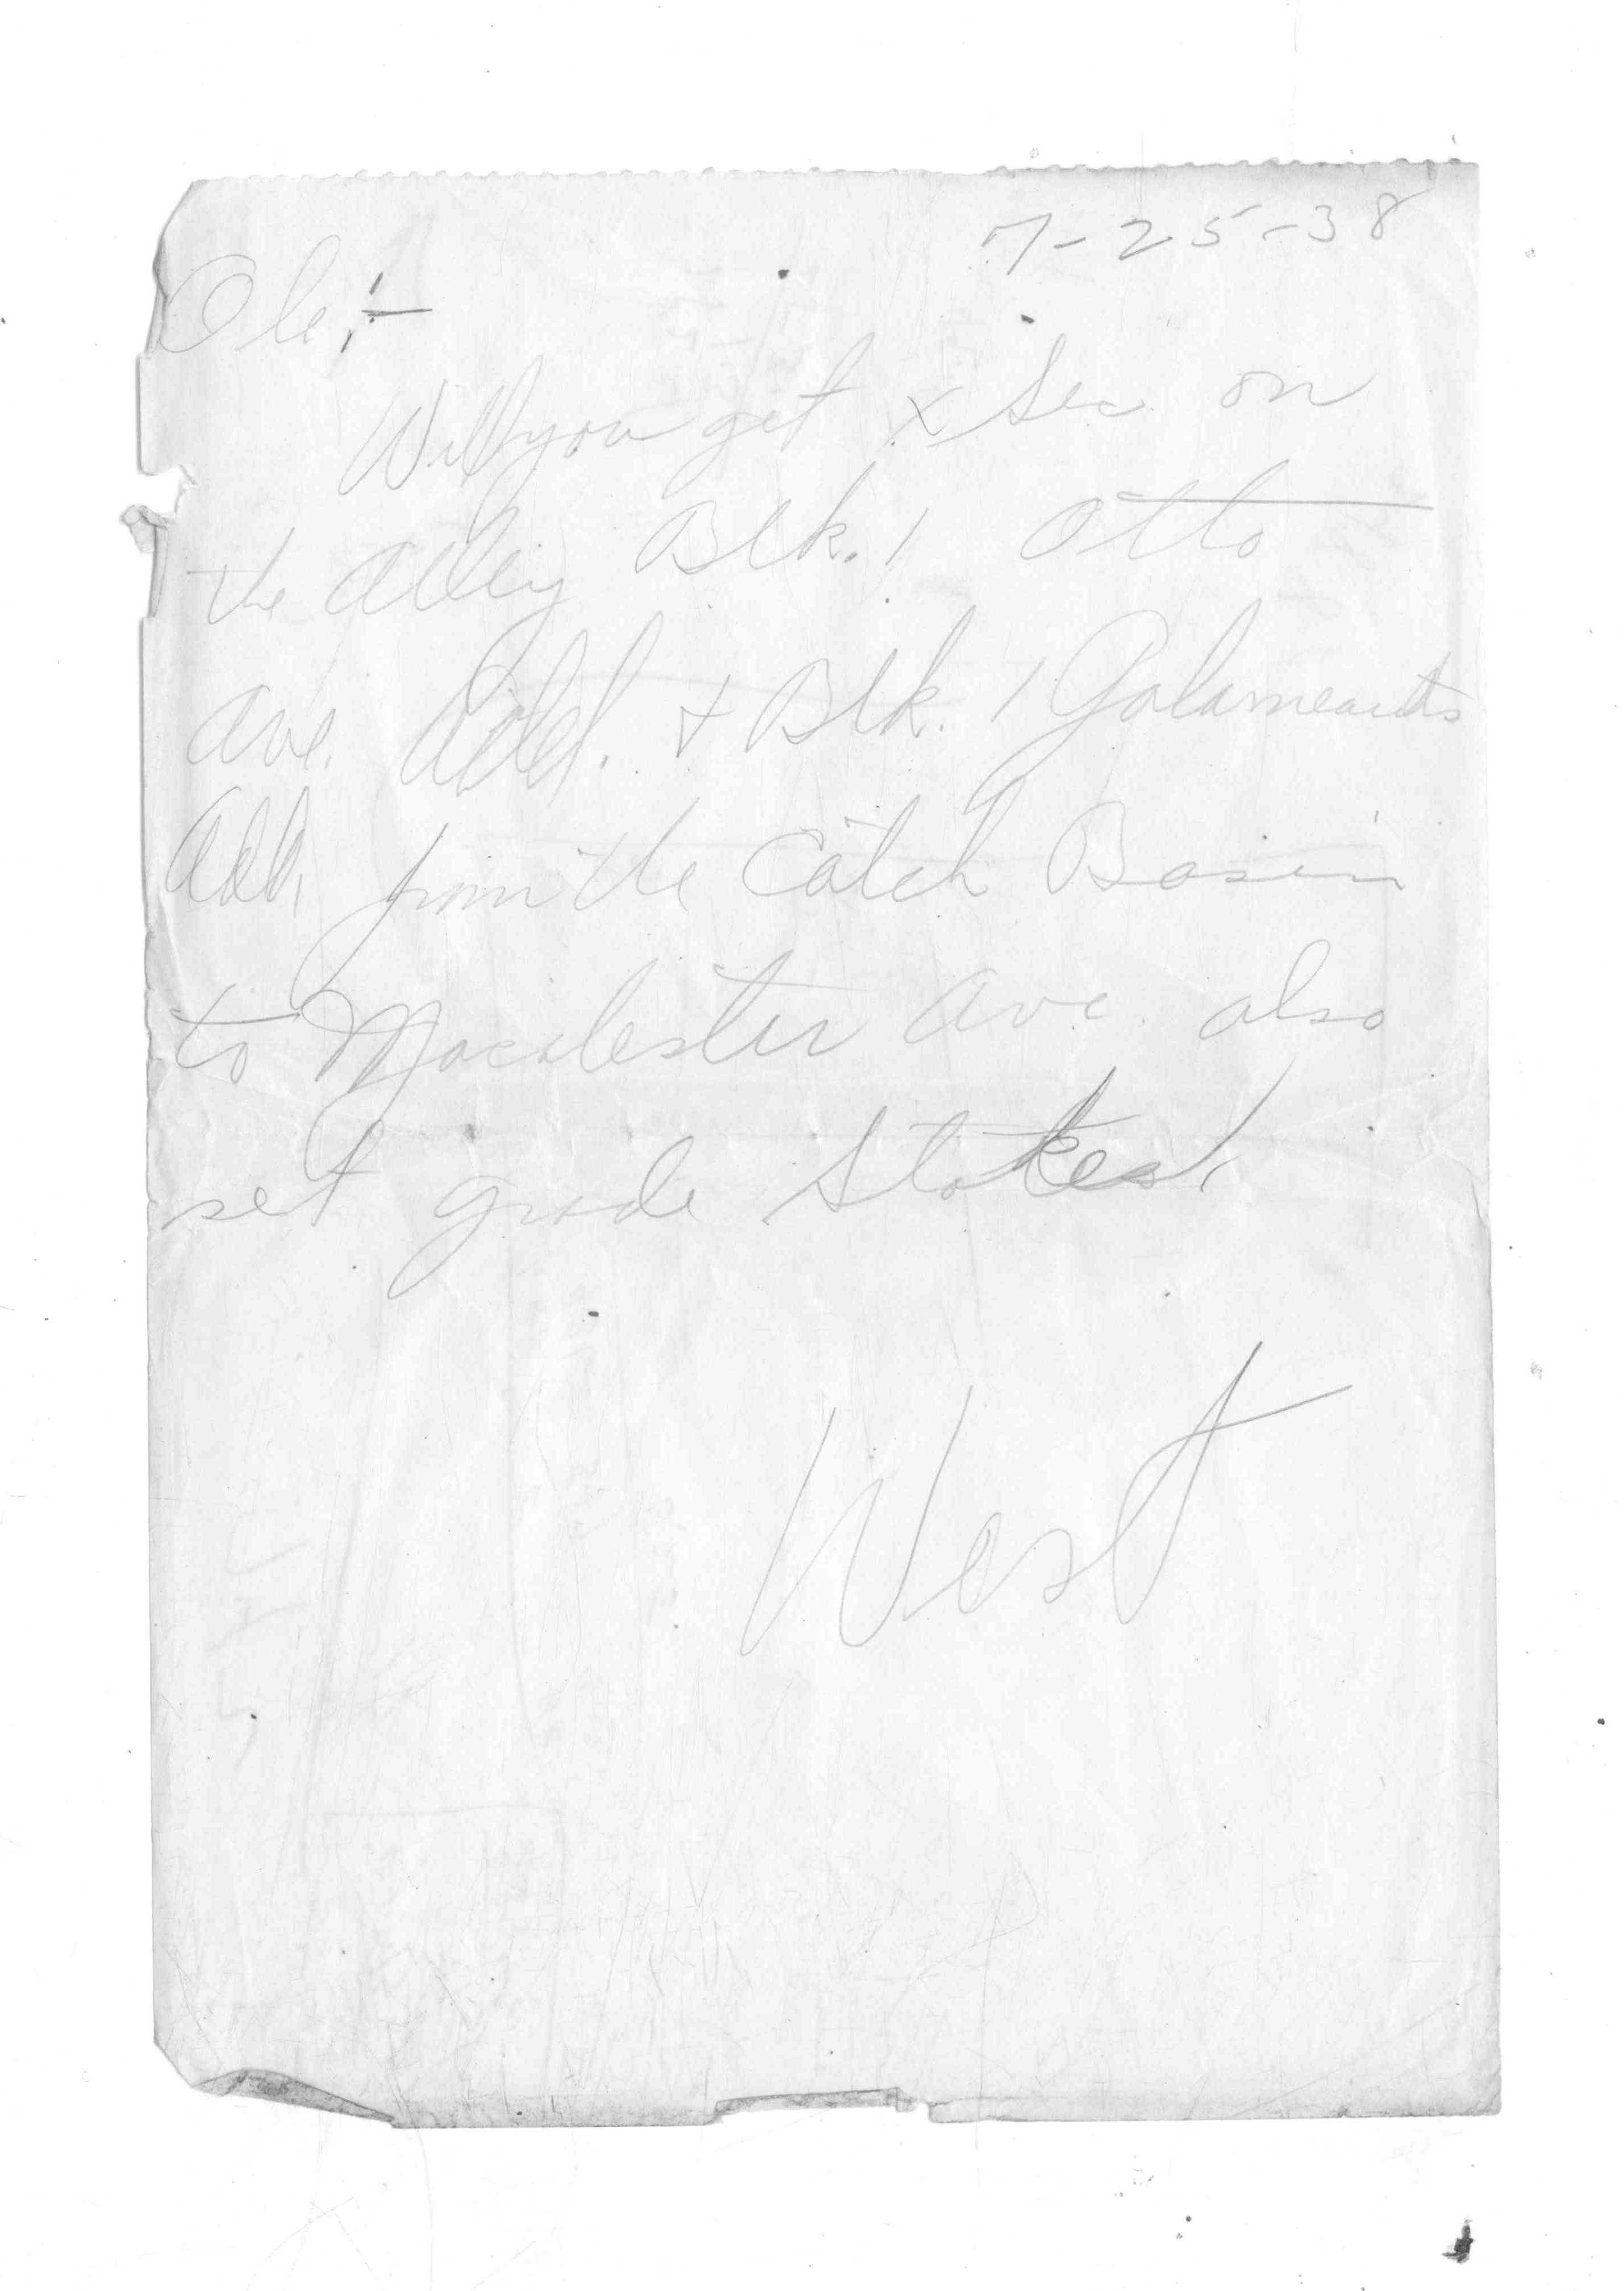 7-25-38
Ole:-
Will you get x Sec. on
the alley Blk. 1 Otto
Ave. Add. & Blk. 1
Add. from the Catch Basin
to Macalester Ave. also
set grade stakes
West